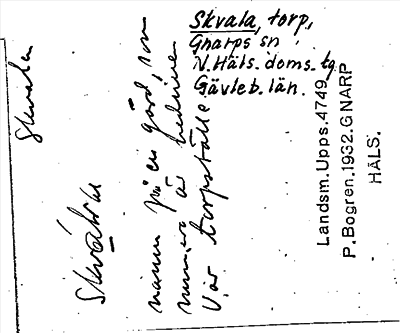 Skvala, torp,
Gnarps sn
N. Häls. doms. tg
Gävleb. län.
Skvalen
namn på en gård, som
nummera är
U.är torpställe.
Landsm. Upps. 4749
P. Bogren. 1932. GNARP
HÄLS.